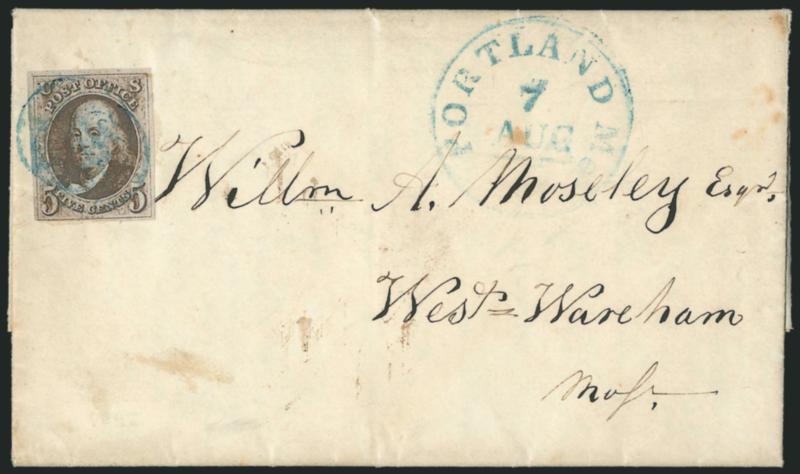 U S
POST OFFICE
5 FIVE CENTS 5
PORTLAND Me
7
AUG
Willm A. Moseley Esqr.
West Wareham
Mass.